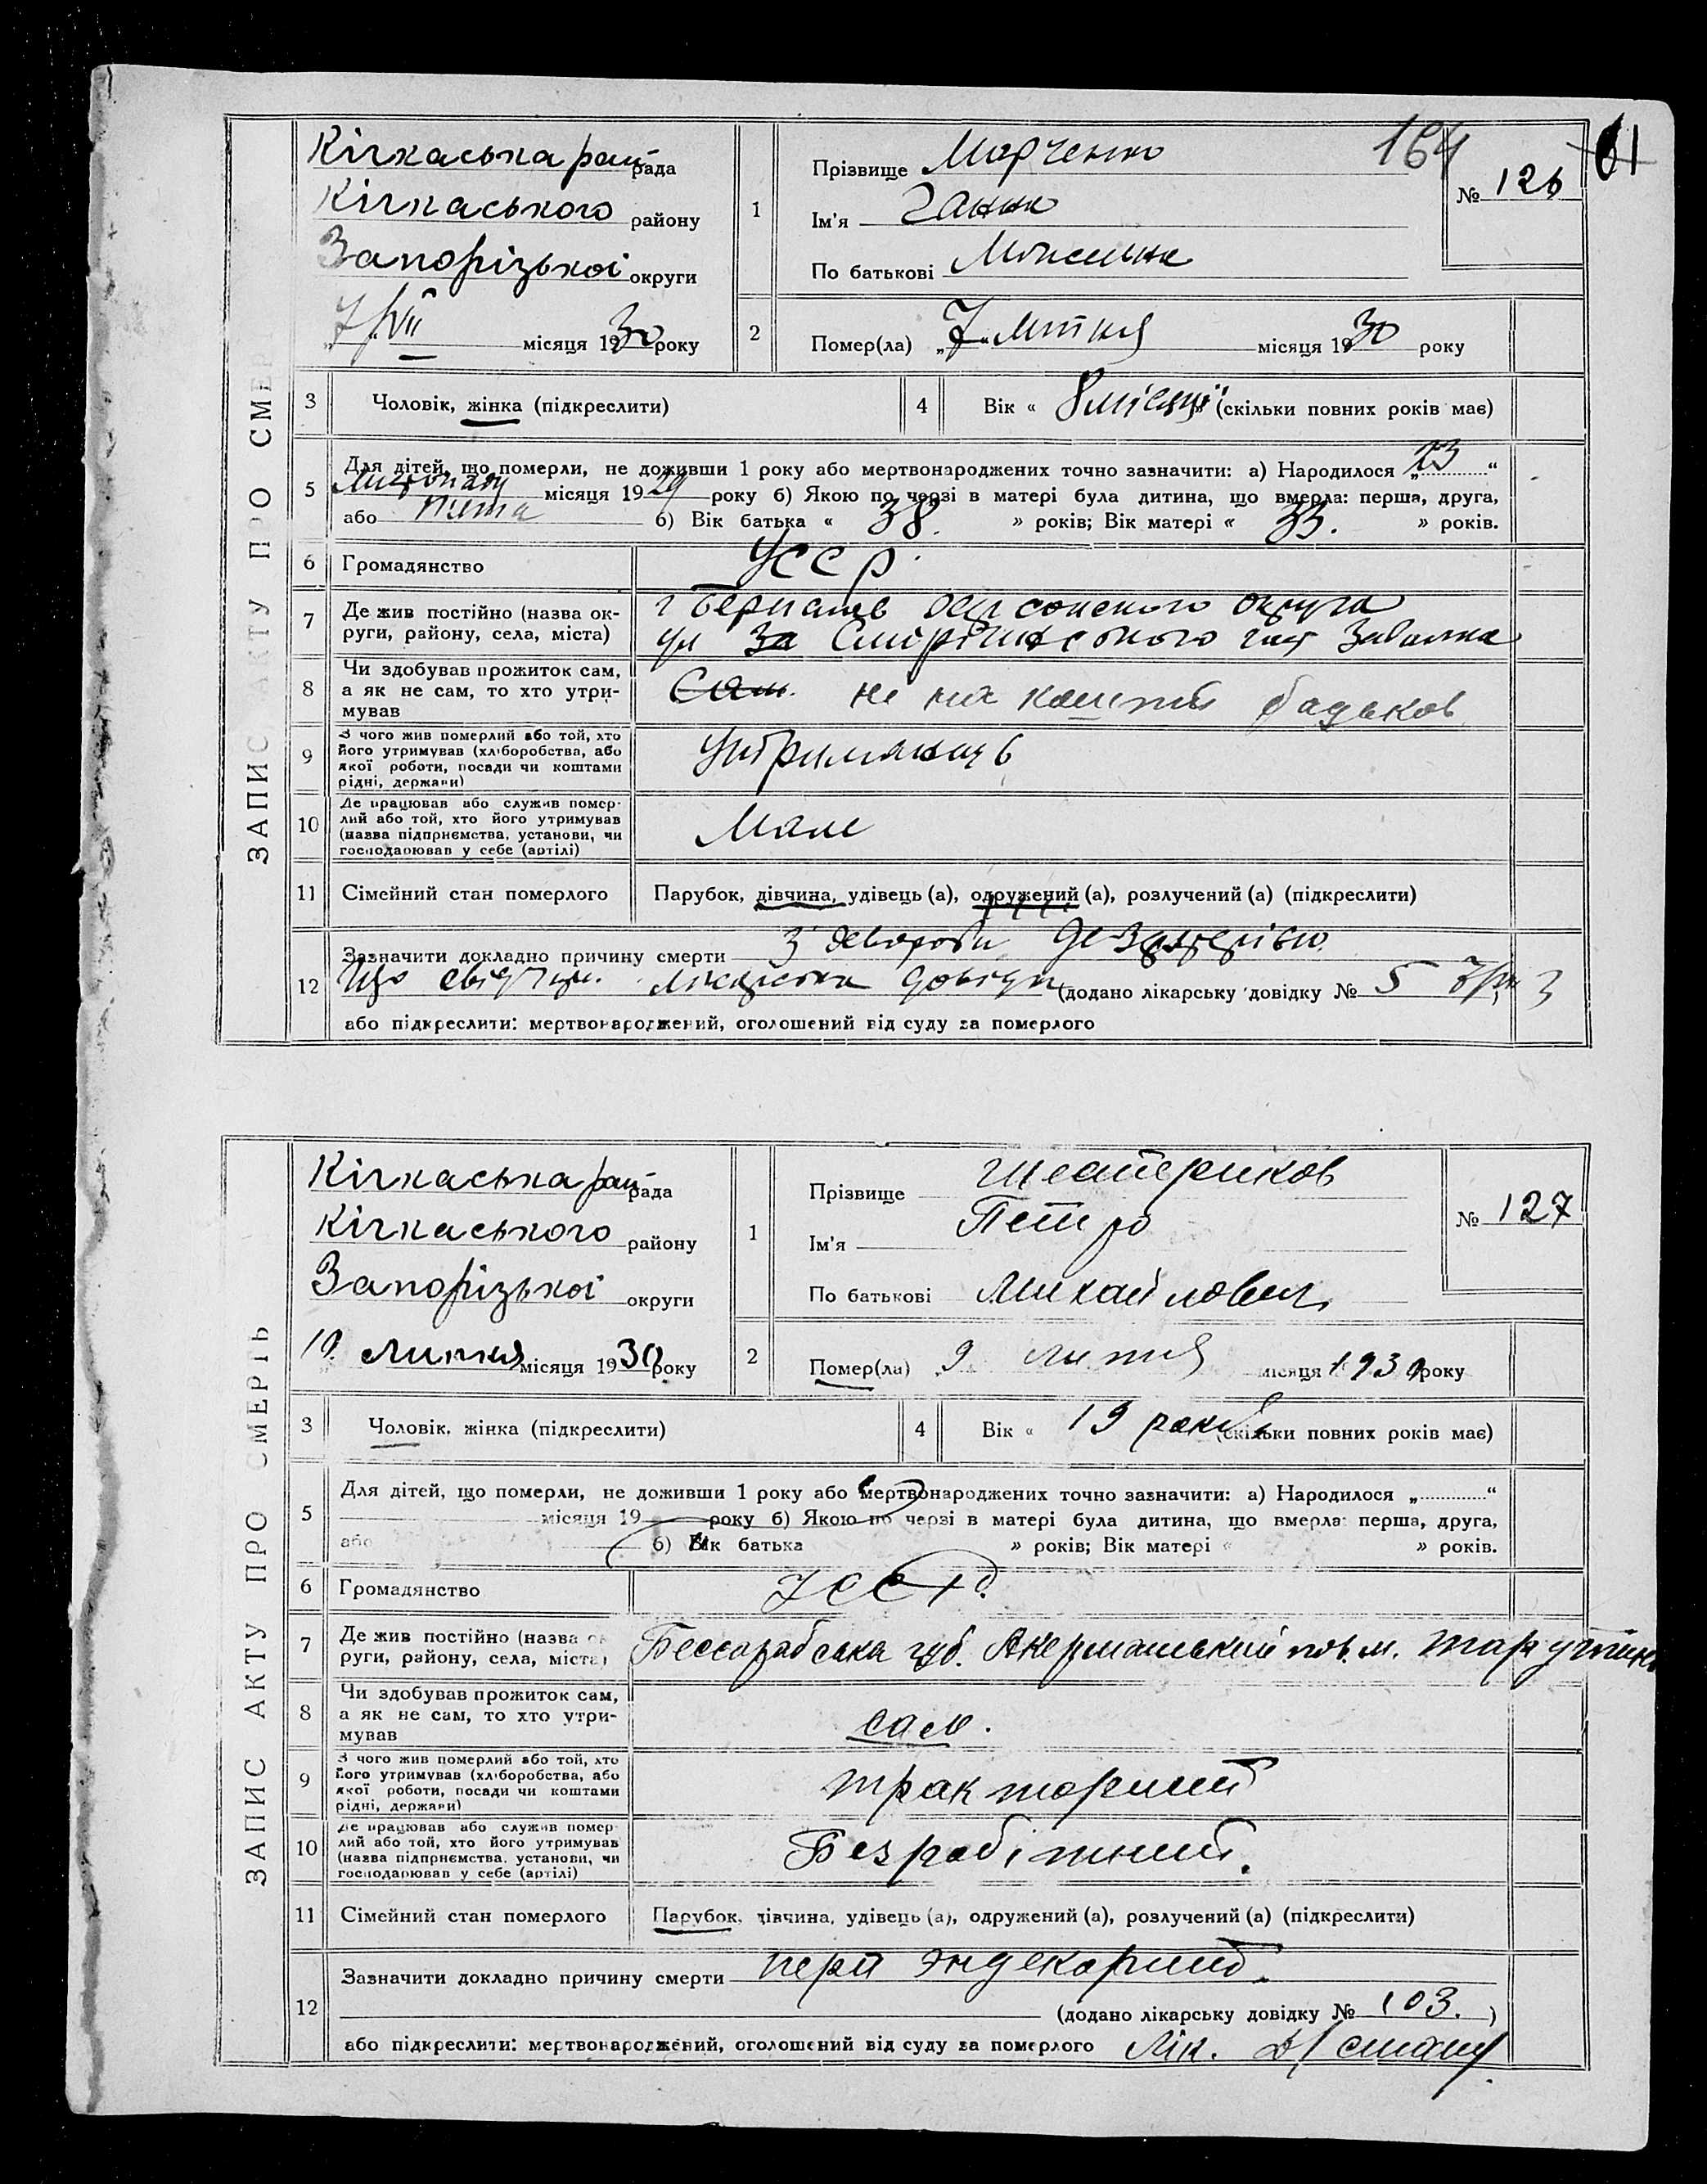 ЗАПИС АКТУ ПРО СМЕ
Кічкаська рай рада
Кічкаського району
Запорізької округи
7/VII місяця 1930 року
1
Прізвище Марченко
Ім'я Ганна
По батькові
164
61
№ 126
2
Помер(ла) „7" липня місяця 1930 року
3
Чоловік, жінка (підкреслити)
4
Вік « 8 місяців » (скільки повних років має)
5
Для дітей, що померли, не доживши 1 року або мертвонароджених точно зазначити: а) Народилося „23"
Листопаду місяця 1929 року б) Якою по черзі в матері була дитина, що вмерла: перша, друга,
або п'ята б) Вік батька « 38. » років; Вік матері « 33. » років.
6
Громадянство
УССР.
7
Де жив постійно (назва ок-
руги, району, села, міста)
г округа
ул
8
Чи здобував прожиток сам,
а як не сам, то хто утри-
мував
Сам. не на кошти батьков
9
З чого жив померлий або той, хто
його утримував (хліборобства, або
якої роботи, посади чи коштами
рідні, держави)
10
Де працював або служив помер-
лий або той, хто його утримував
(назва підприємства, установи, чи
господарював у себе (артілі)
Мале
11
Сімейний стан померлого
Парубок, дівчина, удівець (а), одружений (а), розлучений (а) (підкреслити)
12
Зазначити докладно причину смерти з хвороби
Що лікарська (додано лікарську довідку № 5
або підкреслити: мертвонароджений, оголошений від суду за померлого
ЗАПИС АКТУ ПРО СМЕРТЬ
Кічкаська рай рада
Кічкаського району
Запорізької округи
10. липня місяця 1930 року
1
Прізвище Шестериков
Ім'я Петро
По батькові Михайлович
№ 127
2
Помер(ла) 9 липня місяця 1930 року
3
Чоловік, жінка (підкреслити)
4
Вік « 19 років (скільки повних років має)
5
Для дітей, що померли, не доживши 1 року або мертвонароджених точно зазначити: а) Народилося „ "
місяця 19 року б) Якою по черзі в матері була дитина, що вмерла: перша, друга,
або б) Вік батька » років; Вік матері « » років.
6
Громадянство
УССР.
7
Де жив постійно (назва ок
руги, району, села, міста)
Бессарабська губ. Акерманський пов. м. Тарутино
8
Чи здобував прожиток сам,
а як не сам, то хто утри-
мував
сам.
9
З чого жив померлий або той, хто
його утримував (хліборобства, або
якої роботи, посади чи коштами
рідні, держави)
тракторист
10
Де працював або служив помер
лий або той, хто його утримував
(назва підприємства, установи, чи
господарював у себе (артілі)
Безробітний.
11
Сімейний стан померлого
Парубок, дівчина, удівець (а), одружений (а), розлучений (а) (підкреслити)
12
Зазначити докладно причину смерти
(додано лікарську довідку № 103. )
або підкреслити: мертвонароджений, оголошений від суду за померлого Лік.